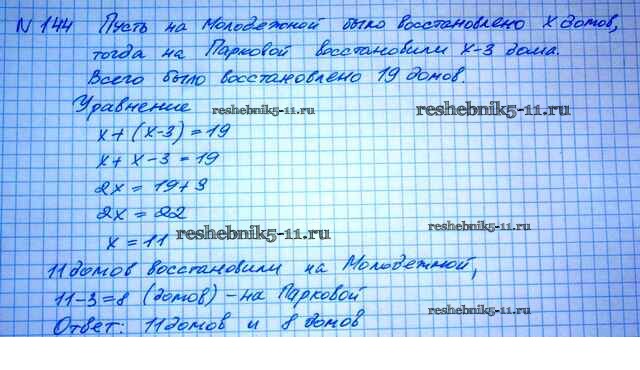 N 144 Пусть на Молодежной было восстановлено x домов,
тогда на Парковой восстановили x-3 дома.
Всего было восстановлено 19 домов.
Уравнение
reshebnik5-11.ru
reshebnik5-11.ru
x+(x-3)=19
x+x-3=19
2x=19+3
2x=22
x=11
reshebnik5-11.ru
reshebnik5-11.ru
11 домов восстановили на Молодежной,
11-3=8 (домов) - на Парковой
Ответ: 11 домов и 8 домов
reshebnik5-11.ru